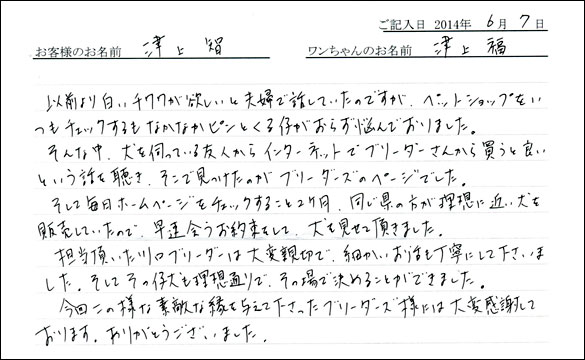 ご記入日 2014年 6月 7日
お客様のお名前 津上 智 ワンちゃんのお名前 津上 福
以前より白いチワワが欲しいと夫婦で話していたのですが、ペットショップをい
つもチェックするもなかなかピンとくる仔がおらず悩んでおりました。
そんな中、犬を伺っている友人からインターネットでブリーダーさんから買うと良い
という話を聴き、そこで見つけたのがブリーダーズのページでした。
そして毎日ホームページをチェックすること2ケ月、同じ県の方が理想に近い犬を
販売していたので、早速会うお約束をして、犬を見せて頂きました。
担当頂いた川口ブリーダーは大変親切で、細かいお話も丁寧にして下さいま
した。そしてその仔犬も理想通りで、その場で決めることができました。
今回この様な素敵な縁を与えて下さったブリーダーズ様には大変感謝して
おります。ありがとうございました。